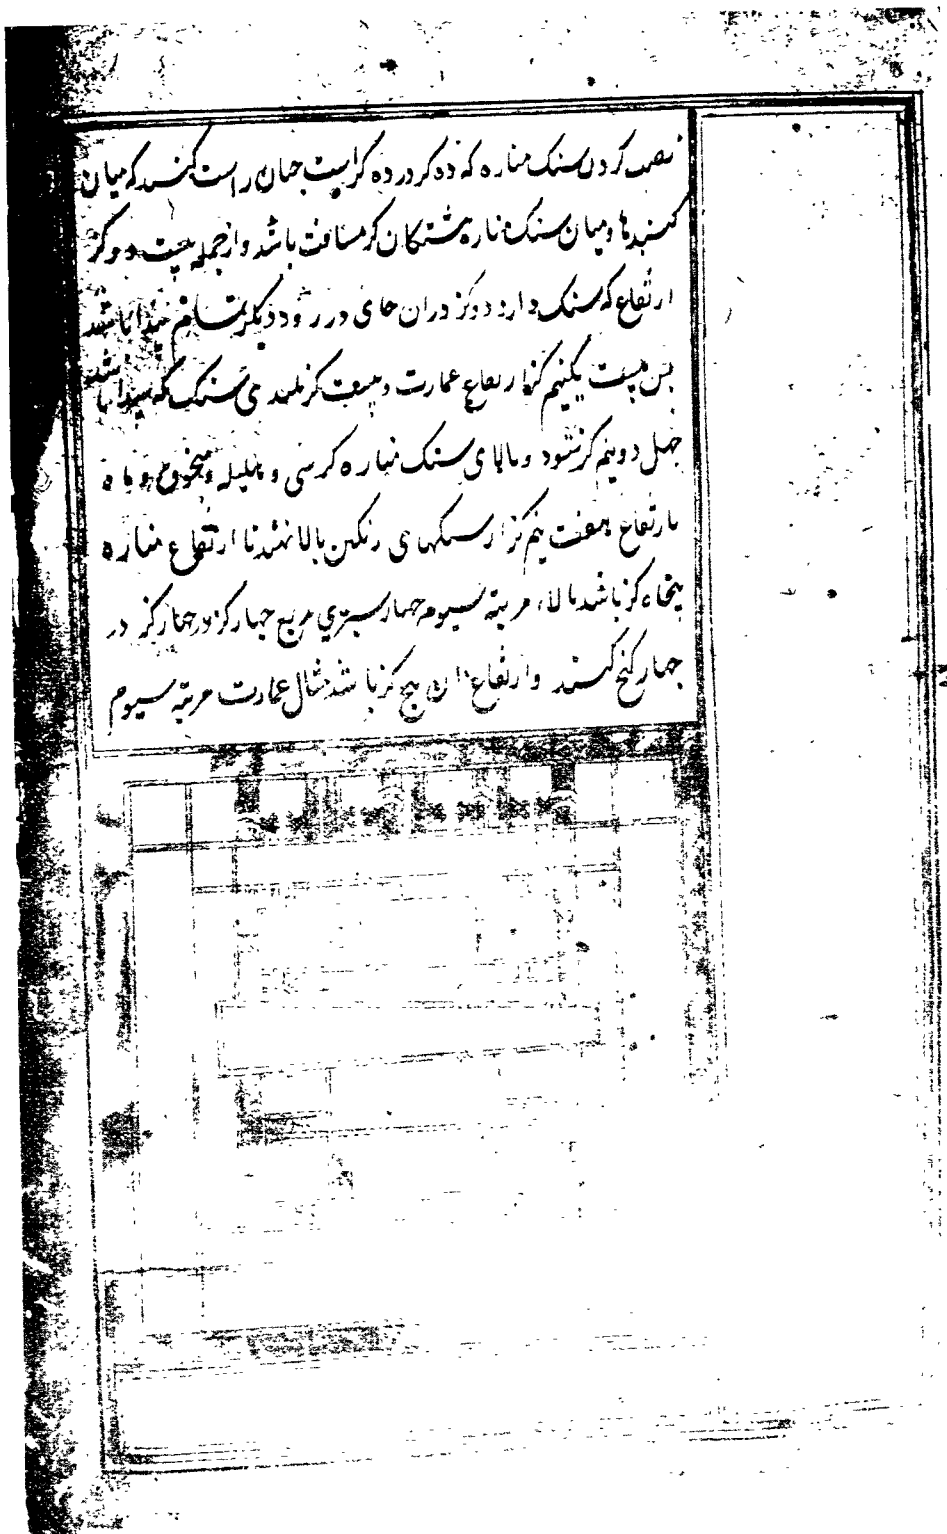 نصب کردن سنک مناره که ده کز در ده کز است چنان راست کنند که میان
کنبدها و میان سنک مناره هشتکان کز مسافت باشد و از جمله بیست دو کز
ارتفاع که سنک دارد دو کز دران جای در رود دیکر تمام پیدا باشد
بس بیست یکنیم کز ارتفاع عمارت و بیست کز بلندی سنک که پیدا باشد
جهل دو نیم کز شود و بالای سنک مناره کرسی و هلیله و مخروط و ماه
بارتفاع هفت نیم کز از سنکهای رنکین بالا نهند تا ارتفاع مناره
پنجاه کز باشد بالاء مرتبه سیوم جهار ستری مربع جهار کز در جهار کز در
جهار کنج کنند و ارتفاع ان پنج کز باشد مثال عمارت مرتبه سیوم